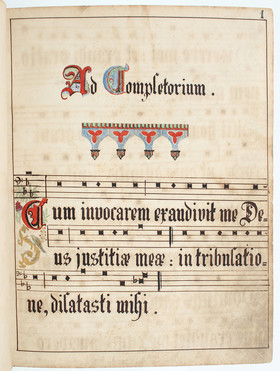 1
Ad Completorium.
Cum invocarem exaudivit me De-
us justitiæ meæ: in tribulatio-
ne, dilatasti mihi.